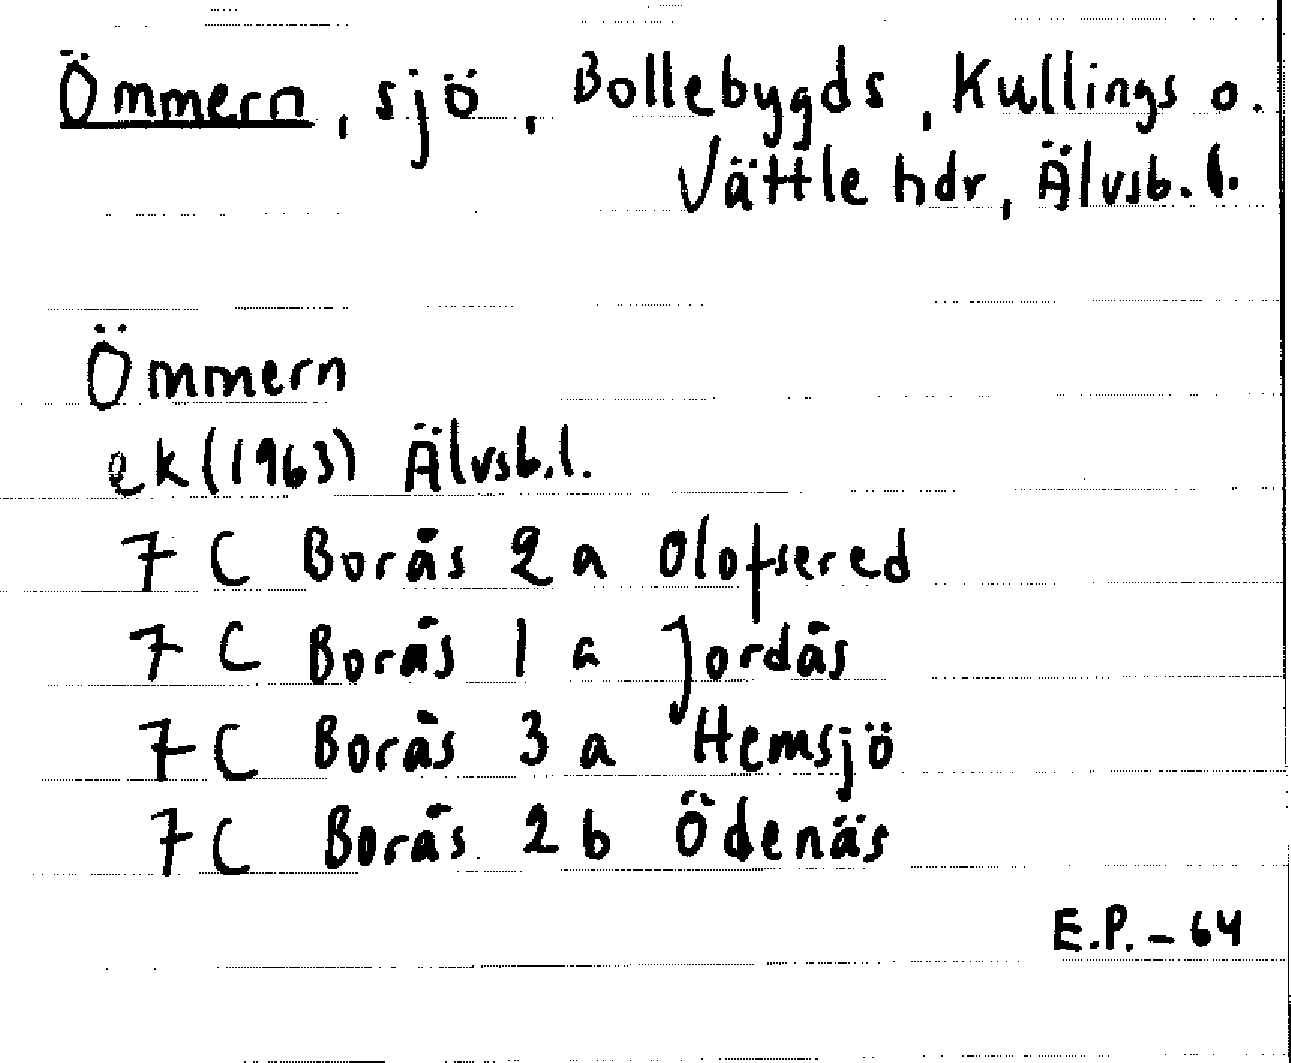 Ömmern, sjö, Bollebygds, Kullings o.
Vättle hdr, Älvsb. l.
Ömmern
ek (1963) Älvsb. l.
7 C Borås 2 a Olofsered
7 C Borås 1 a Jordås
7 C Borås 3 a Hemsjö
7 C Borås 2 b Ödenäs
E.P. - 64